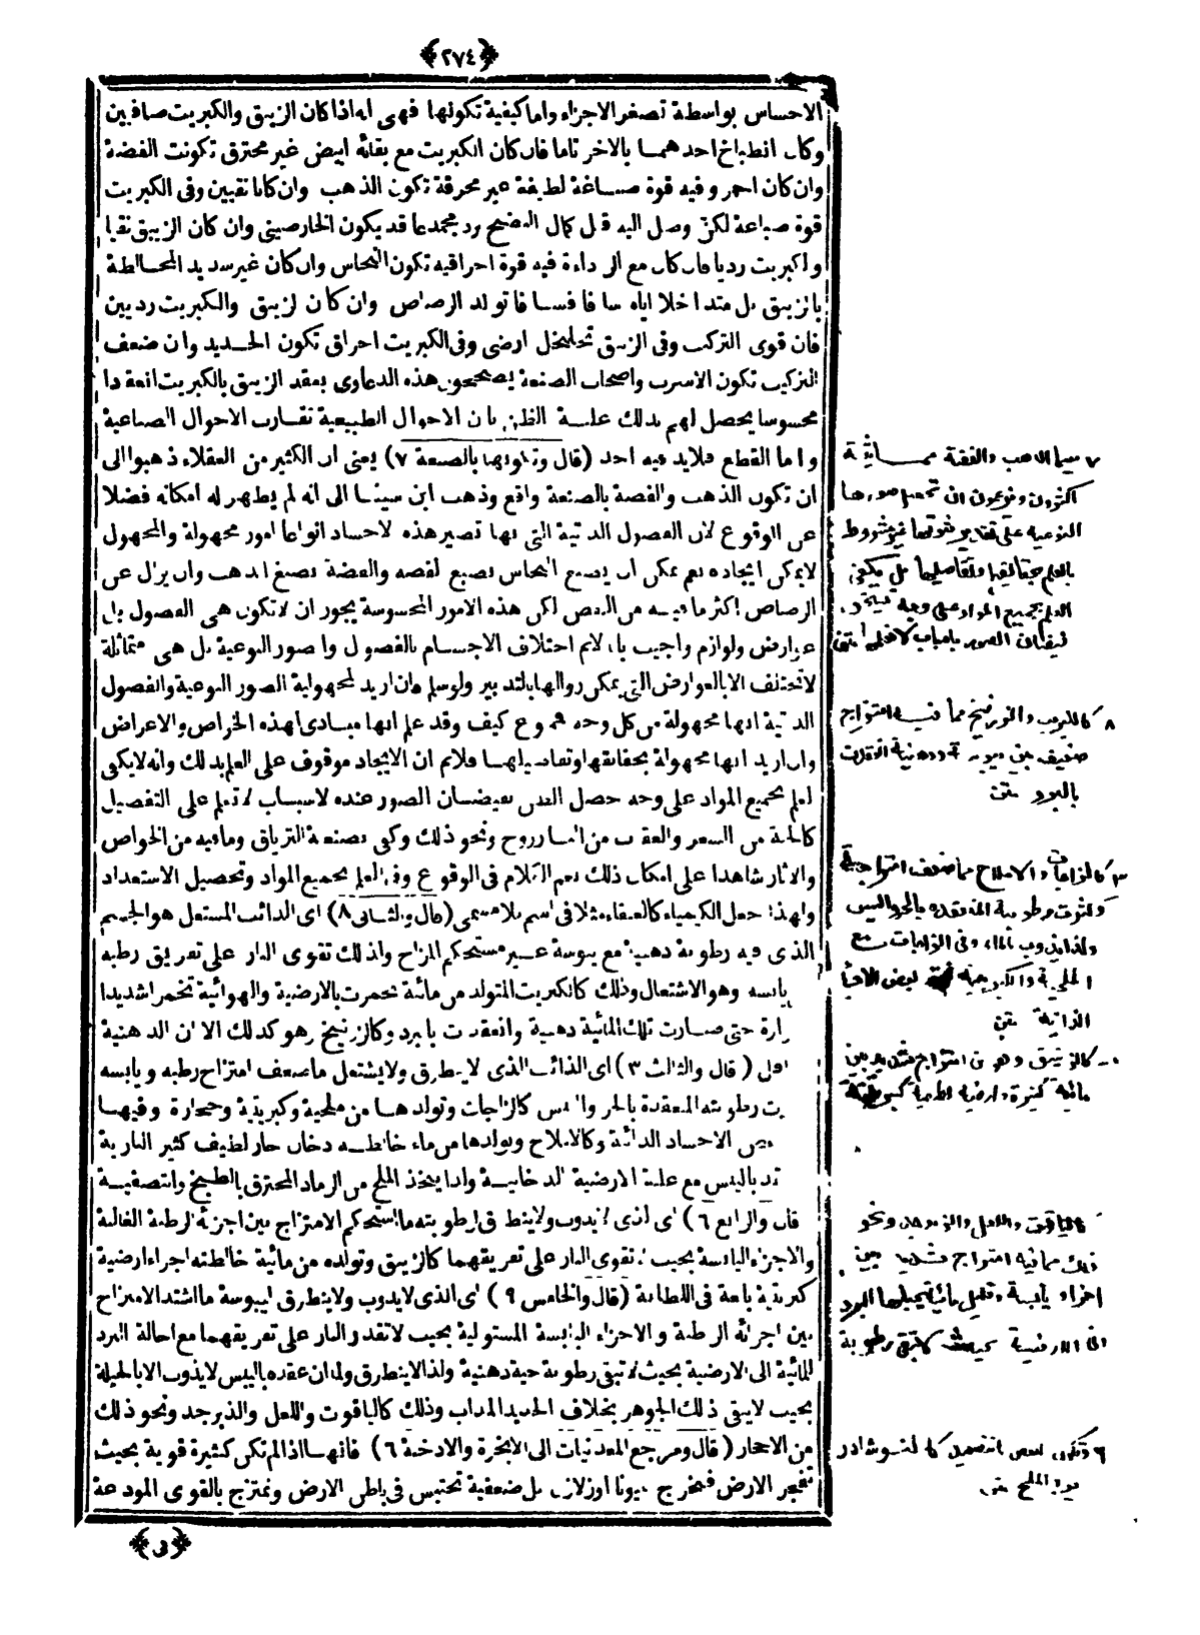 ﴿٢٧٤﴾
الاحساس بواسطة تصغر الاجزاء واما كيفية تكونها فهى انه اذا كان الزيبق والكبريت صافيين
وكان انطباخ احدهما بالآخر تاما فان كان الكبريت مع بقائه ابيض غير محترق تكونت الفضة
وان كان احمر وفيه قوة صباغة لطيفة غير محرقة تكون الذهب وان كانا نقيين وفى الكبريت
قوة صباغة لكن وصل اليه قبل كمال النضج برد مجمد عاقد يكون الخارصينى وان كان الزيبق نقيا
والكبريت رديا فان كان مع الرداءة فيه قوة احراقية تكون النحاس وان كان غير سديد المخالطة
بالزيبق بل متداخلا اياه سافا فسافا تولد الرصاص وان كان الزيبق والكبريت رديين
فان قوى التركيب وفى الزيبق تخلخل ارضى وفى الكبريت احراق تكون الحديد وان ضعف
التركيب تكون الاسرب واصحاب الصنعة يصححون هذه الدعاوى بعقد الزيبق بالكبريت انعقادا
محسوسا يحصل لهم بذلك غلبة الظن بان الاحوال الطبيعية تقارب الاحوال الصناعية
واما القطع فلا يدعيه احد (قال وتكونها بالصنعة ٧) يعنى ان الكثير من العقلاء ذهبوا الى
ان تكون الذهب والفضة بالصنعة واقع وذهب ابن سينا الى انه لم يظهر له امكانه فضلا
عن الوقوع لان الفصول الذاتية التى بها تصير هذه الاجساد انواعا امور مجهولة والمجهول
لا يمكن ايجاده نعم يمكن ان يصبغ النحاس بصبغ الفضة والفضة بصبغ الذهب وان يزال عن
الرصاص اكثر ما فيه من النقص لكن هذه الامور المحسوسة يجوز ان لا تكون هى الفصول بل
عوارض ولوازم واجيب بانا لانم اختلاف الاجسام بالفصول والصور النوعية بل هى متماثلة
لا تختلف الا بالعوارض التى يمكن زوالها بالتدبير ولو سلم فان اريد لمجهولية الصور النوعية والفصول
الذاتية انها مجهولة من كل وجه فممنوع كيف وقد علم انها مبادى لهذه الخواص والاعراض
وان اريد انها مجهولة بحقائقها وتفاصيلها فلانم ان الايجاد موقوف على العلم بذلك وانه لا يكفى
العلم بجميع المواد على وجه حصل الظن بفيضان الصور عنده لاسباب لا تعلم على التفصيل
كالحية من الشعر والعقرب من البادروج ونحو ذلك وكفى بصنعة الترياق وما فيه من الخواص
والاثار شاهدا على امكان ذلك نعم الكلام فى الوقوع وفى العلم بجميع المواد وتحصيل الاستعداد
ولهذا جعل الكيمياء كالعنقاء مثلا فى اسم بلا مسمى (قال والثانى ٨) اى الذائب المشتعل هو الجسم
الذى فيه رطوبة دهنية مع يبوسة غير مستحكم المزاج ولذلك تقوى النار على تفريق رطبه
يابسه وهو الاشتعال وذلك كالكبريت المتولد من مائية تخمرت بالارضية والهوائية تخمرا شديدا
ارة حتى صارت تلك المائية دهنية وانعقدت بالبرد وكالزرنيخ وهو كذلك الا ان الدهنية
اقل (قال والثالث ٣) اى الذائب الذى لا ينطرق ولا يشتعل ما ضعف امتزاج رطبه ويابسه
ت رطوبته المنعقدة بالحر واليبس كالزاجات وتولدها من ملحية وكبريتية وحجارة وفيها
بعض الاجساد الذائبة وكالاملاح وتولدها من ماء خالطه دخان حار لطيف كثير النارية
قد باليبس مع غلبة الارضية الدخانية ولذا يتخذ الملح من الرماد المحترق بالطبخ والتصفية
قال والرابع ٦) اى الذى لا يذوب ولا ينطرق لرطوبته ما استحكم الامتزاج بين اجزائه الرطبة الغالبة
والاجزاء اليابسة بحيث لا تقوى النار على تفريقهما كالزيبق وتولده من مائية خالطته اجزاء ارضية
كبريتية بالغة فى اللطافة (قال والخامس ٩) اى الذى لا يذوب ولا ينطرق ليبوسة ما اشتد الامتزاج
بين اجزائه الرطبة والاجزاء اليابسة المستولية بحيث لا تقدر النار على تفريقهما مع احالة البرد
للمائية الى الارضية بحيث لا تبقى رطوبة حية دهنية ولذا لا ينطرق ولما ان عقده باليبس لا يذوب الا بالحيلة
بحيث لا يبقى ذلك الجوهر بخلاف الحديد المذاب وذلك كالياقوت واللعل والزبرجد ونحو ذلك
من الاحجار (قال ومرجع المعدنيات الى الابخرة والادخنة ٦) فانها اذا لم تكن كثيرة قوية بحيث
تنفجر الارض فتخرج عيونا او زلازل بل ضعيفة تحتبس فى باطن الارض وتمتزج بالقوى المودعة
﴿فى﴾
٧ سيما الذهب والفضة مما
اكثرون ويزعمون ان تحصيل صورها
النوعية على تقدير ثبوتها غير مشروط
بالعلم بحقائقها وتفاصيلها بل يكفى
العلم بجميع المواد على وجه
لفيضان الصور باسباب لا نعلمها متن
٨ كالكبريت والزرنيخ مما فيه امتزاج
ضعيف بين يبوسة ودهنية انعقدت
بالبرد متن
٣ كالزاجات والاملاح مما ضعف امتزاجه
وكثرت رطوبته المنعقدة بالحر واليبس
ولذا يذوب بالماء وفى الزاجات مع
الملحية والكبريتية بعض الاجساد
الذائبة متن
كالزيبق وهو من امتزاج شديد بين
مائية كثيرة وارضية لطيفة كبريتية
كالياقوت واللعل والزبرجد ونحو
ذلك مما فيه امتزاج شديد بين
اجزاء يابسة وقليل مائية يحيلها البرد
الى الارضية بحيث لا تبقى رطوبة
٦ وتكون بعض بالتصعيد كالنوشادر
والملح متن